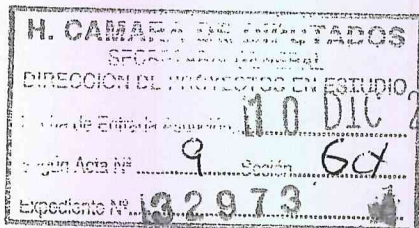 H. CAMARA DE DIPUTADOS
SECRETARIA GENERAL
DIRECCION DE PROYECTOS EN ESTUDIO
de Entrada 10 DIC 2
Según Acta Nº 9 Sesión
Expediente Nº 32973